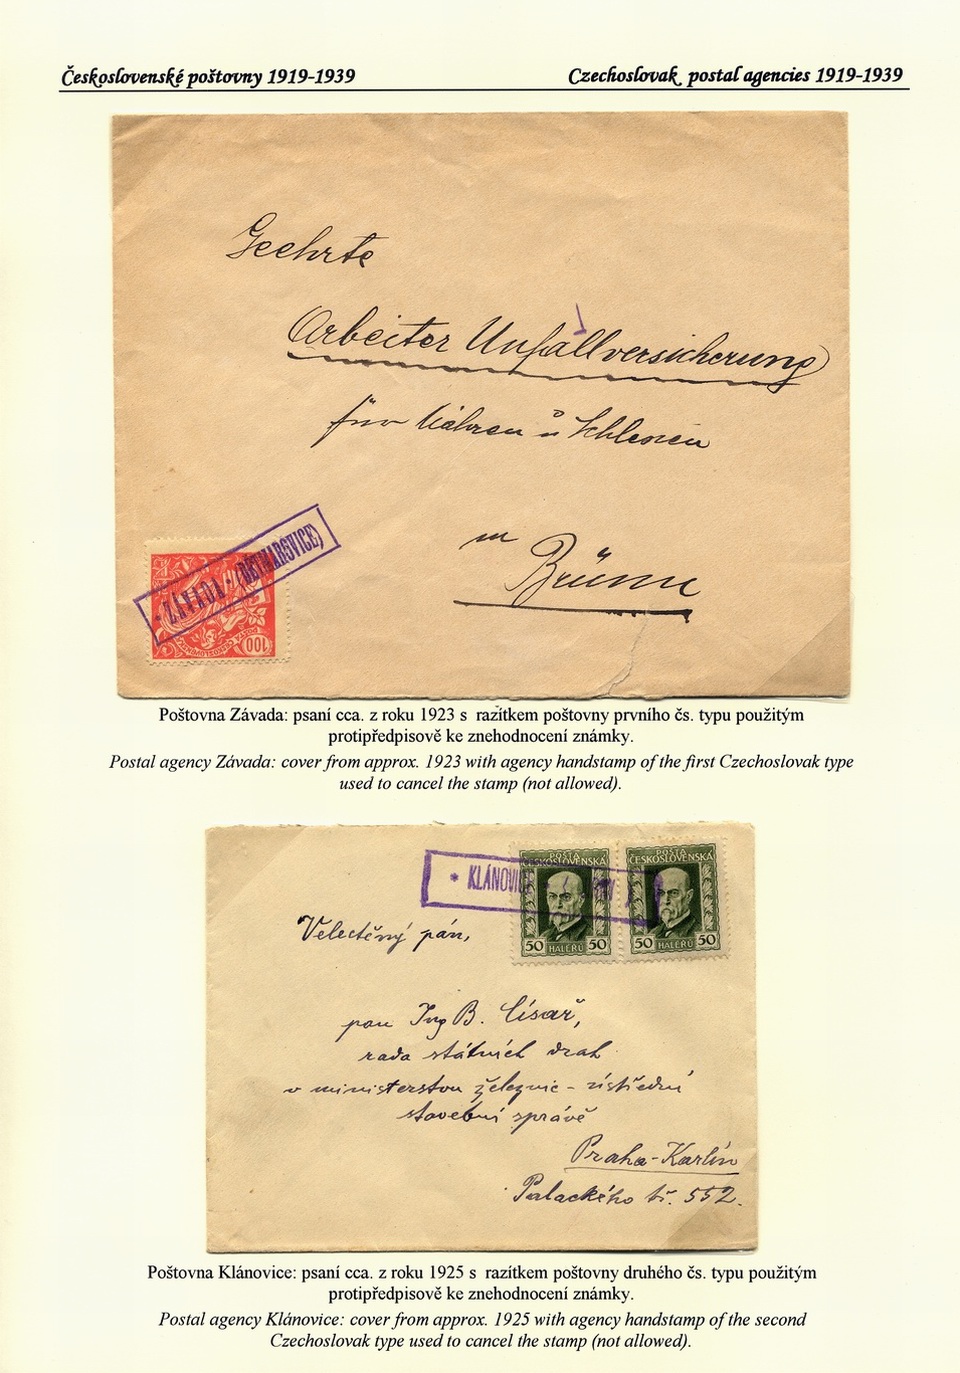 Československé poštovny 1919-1939
Czechoslovak postal agencies 1919-1939
Geehrte
Arbeiter Unfallversicherung
für Mähren u Schlesien
in
Brünn
* ZÁVADA * (DĚTMAROVICE)
100
POŠTA ČESKOSLOVENSKÁ
Poštovna Závada: psaní cca. z roku 1923 s razítkem poštovny prvního čs. typu použitým
protipředpisově ke znehodnocení známky.
Postal agency Závada: cover from approx. 1923 with agency handstamp of the first Czechoslovak type
used to cancel the stamp (not allowed).
* KLÁNOVICE
POŠTA
ČESKOSLOVENSKÁ
50 HALÉŘŮ 50
POŠTA
ČESKOSLOVENSKÁ
50 HALÉŘŮ 50
Velectěný pán,
pan Ing B. Císař,
rada státních drah
v ministerstvu železnic - ústřední
stavební správě
Praha-Karlín
Palackého tř. 552.
Poštovna Klánovice: psaní cca. z roku 1925 s razítkem poštovny druhého čs. typu použitým
protipředpisově ke znehodnocení známky.
Postal agency Klánovice: cover from approx. 1925 with agency handstamp of the second
Czechoslovak type used to cancel the stamp (not allowed).